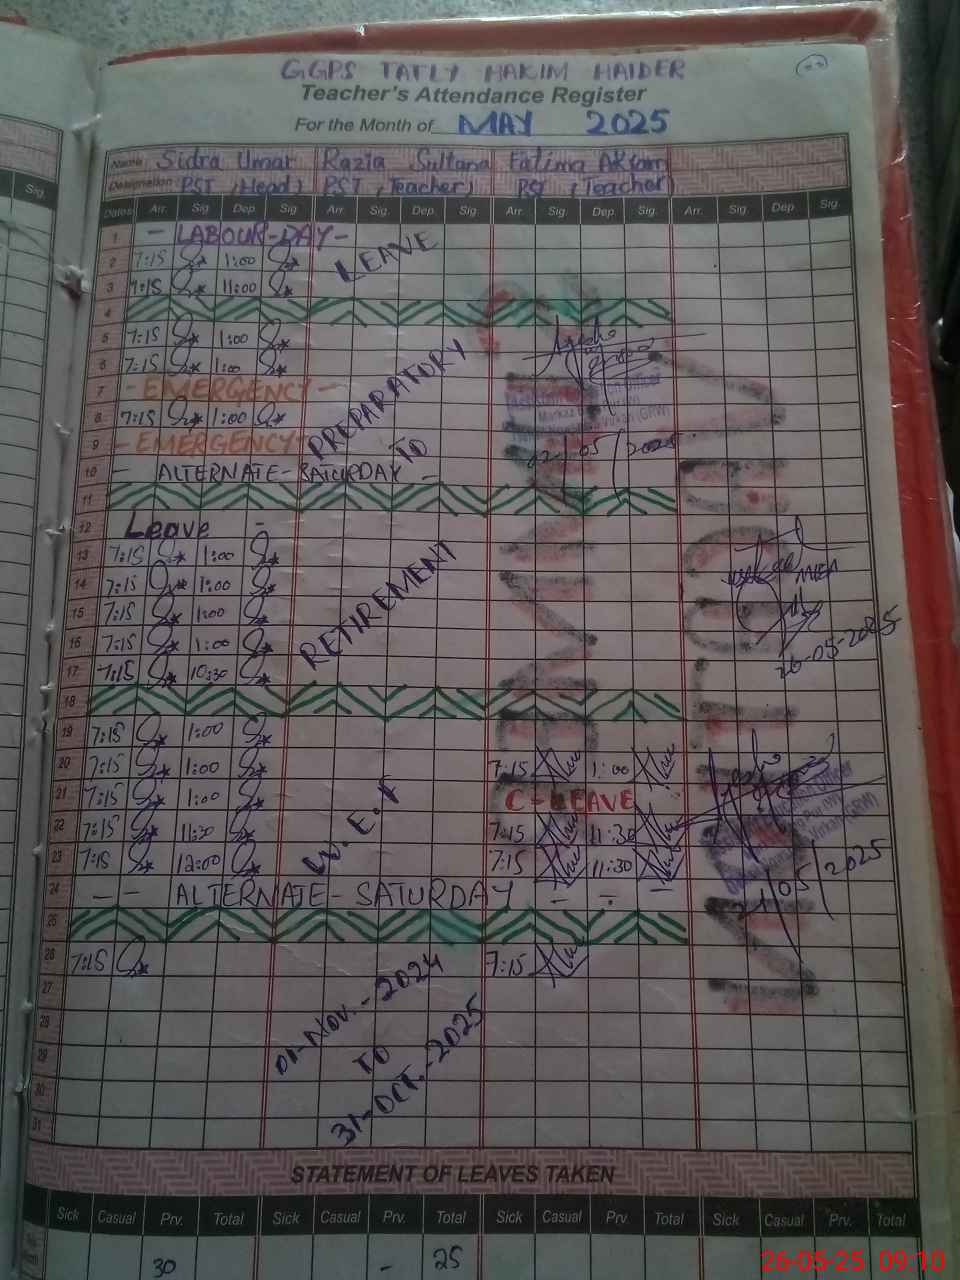 GGPS TATLY HAKIM HAIDER
Teacher's Attendance Register
For the Month of MAY 2025
Sig.
Name Sidra Umar Razia Sultana Fatima Akram
Designation PST (Head) PST (Teacher) PST (Teacher)
Dates Arr. Sig. Dep. Sig. Arr. Sig. Dep. Sig. Arr. Sig. Dep. Sig. Arr. Sig. Dep. Sig.
1 - LABOUR-DAY-
2 7:15 1:00
3 7:15 11:00
LEAVE
4
5 7:15 1:00
6 7:15 1:00
7 - EMERGENCY -
8 7:15 1:00
9 - EMERGENCY-
PREPARATORY
TO
02/05/2025
10 - ALTERNATE-SATURDAY -
11
12 Leave -
13 7:15 1:00
14 7:15 1:00
15 7:15 1:00
16 7:15 1:00
17 7:15 10:30
RETIREMENT
26-05-2025
18
19 7:15 1:00
20 7:15 1:00 7:15 1:00
21 7:15 1:00 C-LEAVE
22 7:15 11:30 7:15 11:30
23 7:15 12:00 7:15 11:30
W.E.F
21/05/2025
24 -- ALTERNATE-SATURDAY - - -
25
26 7:15 7:15
27
28
29
30
31
01-NOV.-2024
TO
31-OCT.-2025
STATEMENT OF LEAVES TAKEN
Sick Casual Prv. Total Sick Casual Prv. Total Sick Casual Prv. Total Sick Casual Prv. Total
30 - 25
26-05-25 09:10